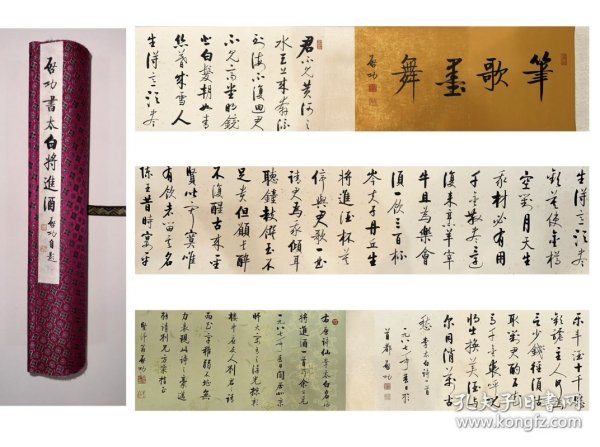 啓功書太白將進酒 啓功自題
筆歌墨舞
啓功
君不見黃河之
水天上來奔流
到海不復回君
不見高堂明鏡
悲白髮朝如青
絲暮成雪人
生得意須盡
生得意須盡
歡莫使金樽
空對月天生
我材必有用
千金散盡還
復來烹羊宰
牛且為樂會
須一飲三百杯
岑夫子丹丘生
將進酒杯莫
停與君歌一曲
請君為我傾耳
聽鐘鼓饌玉不
足貴但願長醉
不復醒古來聖
賢皆寂寞唯
有飲者留其名
陳王昔時宴平
樂斗酒十千恣
歡謔主人何
為言少錢徑須沽
取對君酌五花
馬千金裘呼兒
將出換美酒與
爾同銷萬古
愁 李太白詩一首
一九八七年夏日於
首都 啓功
唐詩仙李太白名
將進酒一首
一九八七年夏日
啓功
孔夫子旧书网
kongfz.com